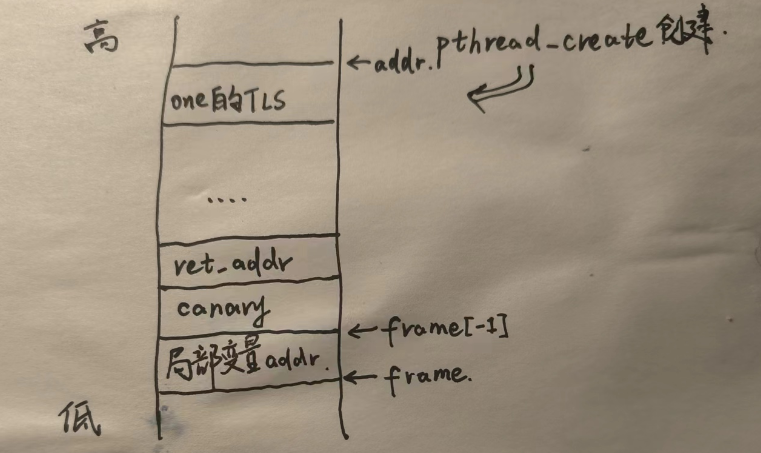 高
←addr. pthread_create 创建.
one的TLS
....
ret_addr
canary
←frame[-1]
局部变量addr.
←frame.
低